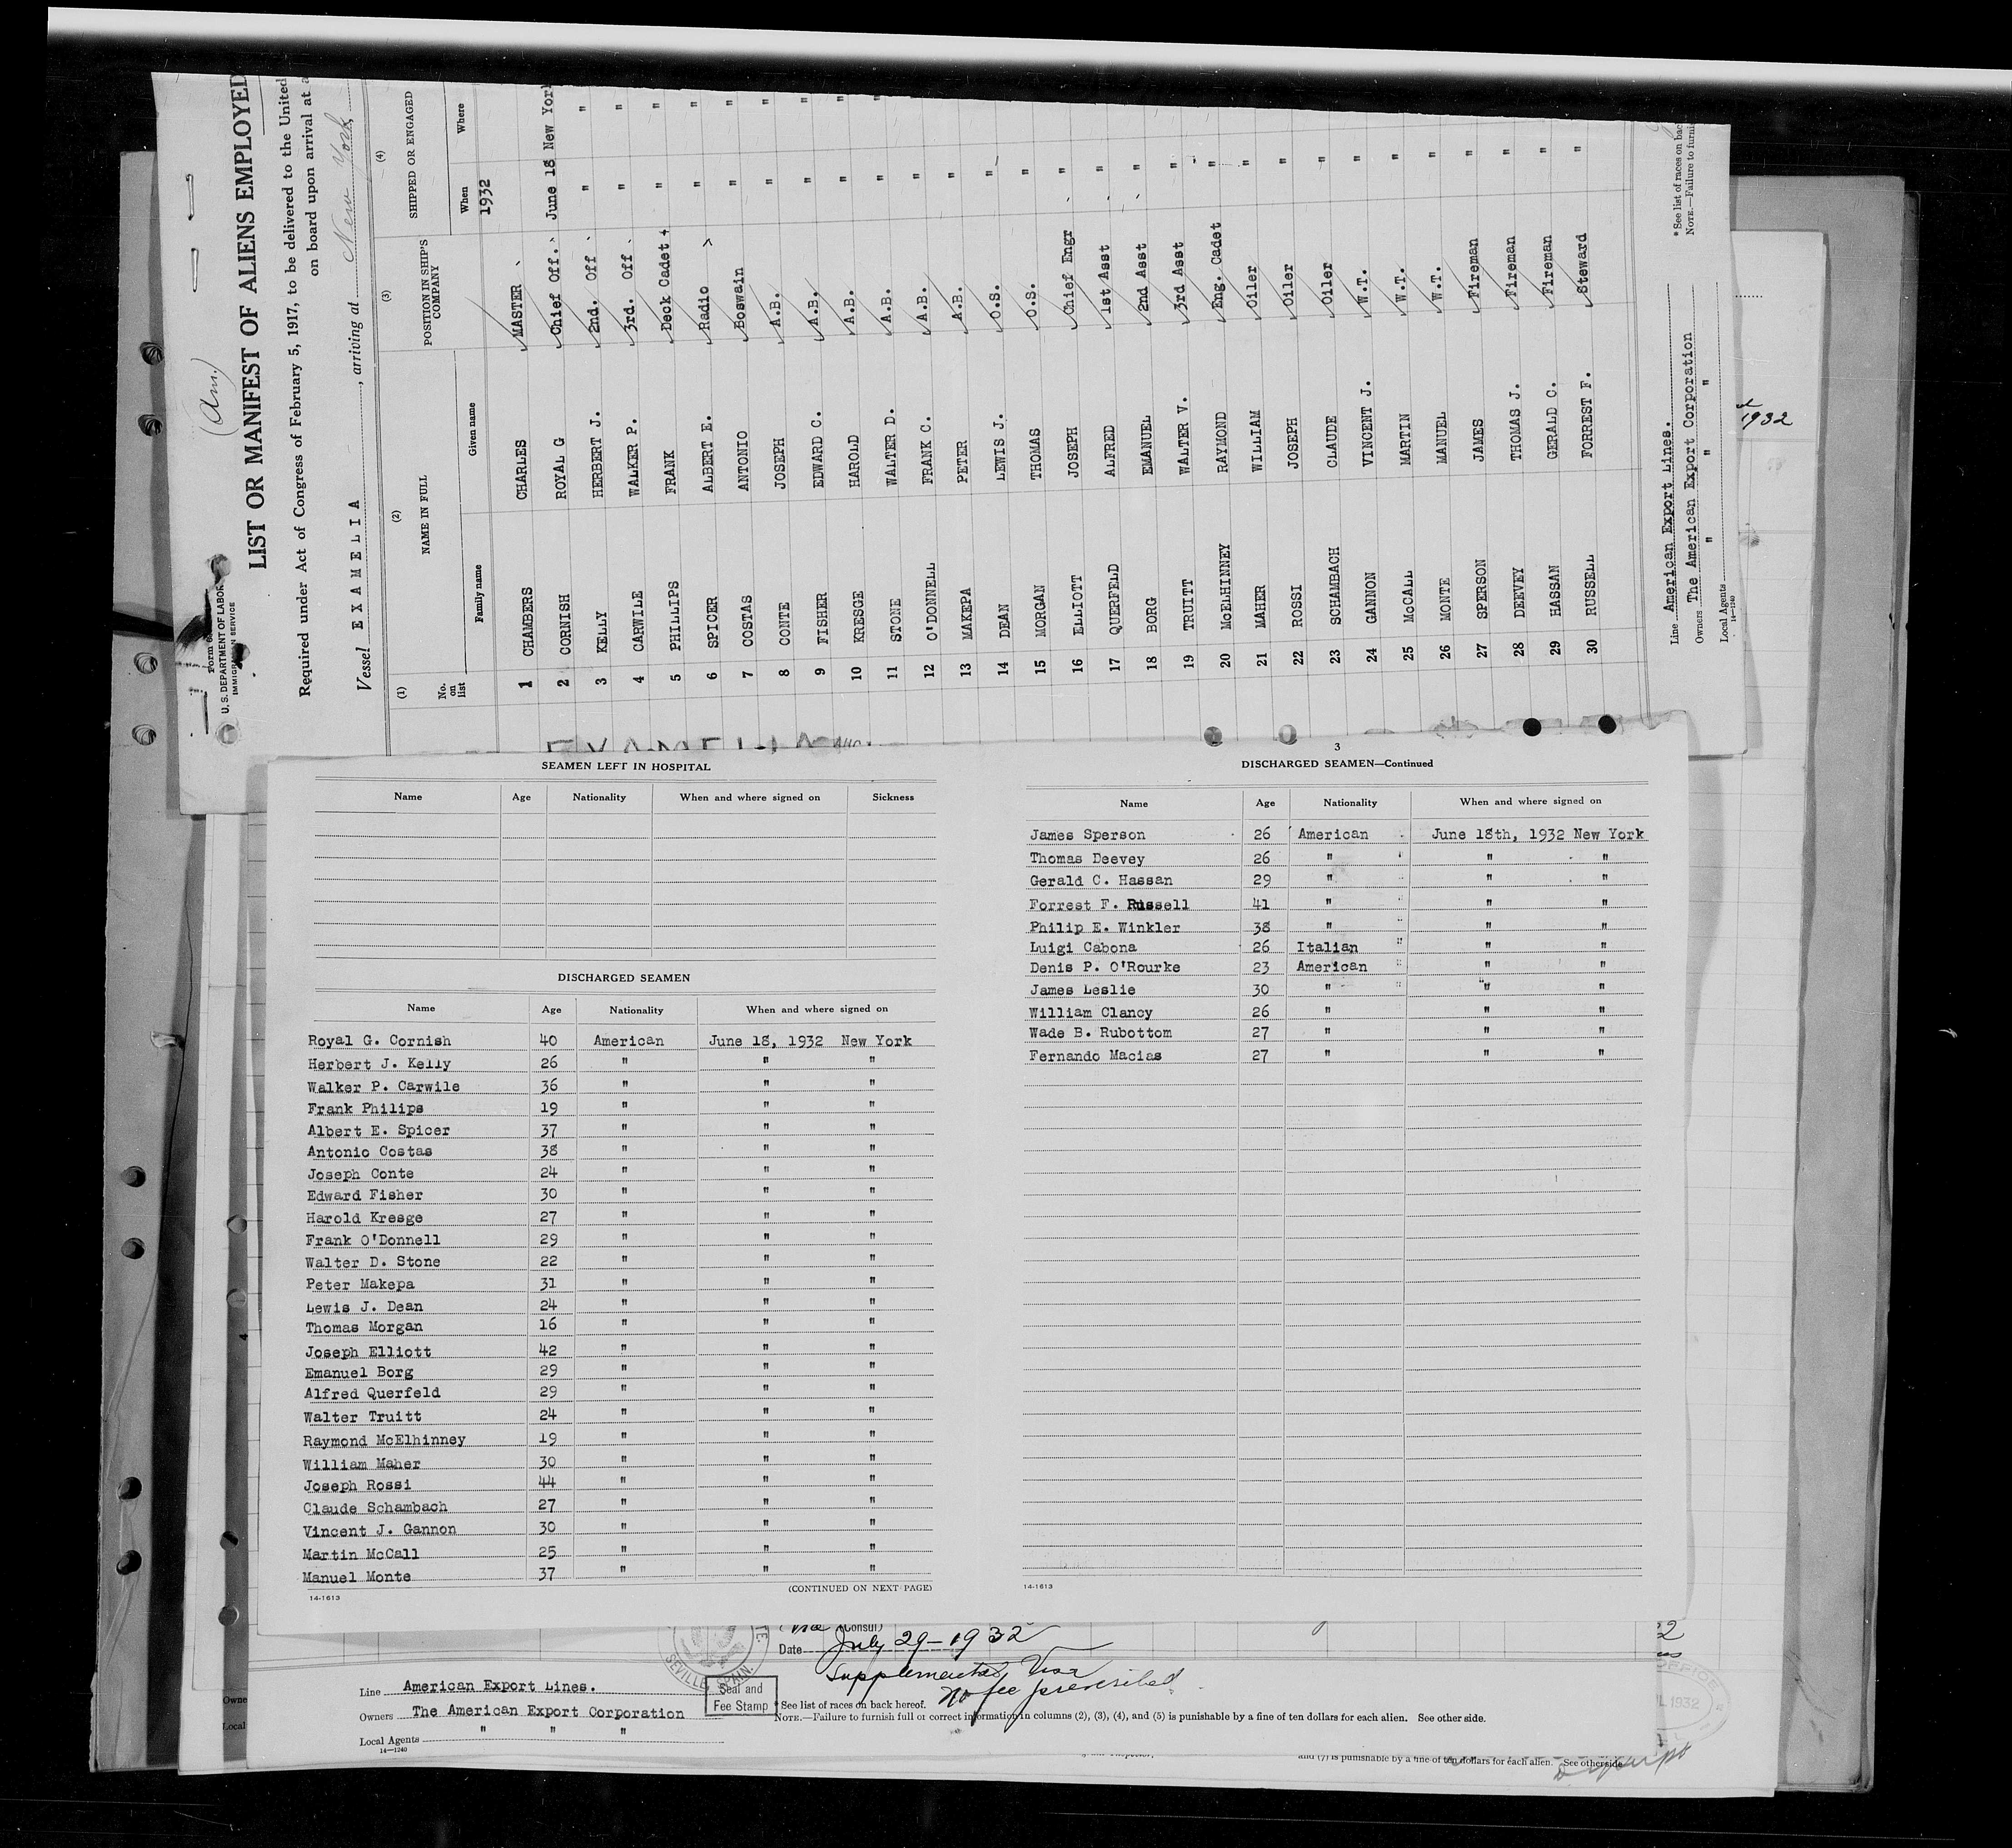 (Am.)
U. S. DEPARTMENT OF LABOR
IMMIGRATION SERVICE
LIST OR MANIFEST OF ALIENS EMPLOYED
Required under Act of Congress of February 5, 1917, to be delivered to the United
on board upon arrival at a
Vessel EXAMELIA, arriving at New York
(1) (2) (3) (4)
No. on list NAME IN FULL POSITION IN SHIP'S COMPANY SHIPPED OR ENGAGED
Family name Given name When Where
1932
1 CHAMBERS CHARLES MASTER
2 CORNISH ROYAL G Chief Off. June 18 New York
3 KELLY HERBERT J. 2nd. Off " "
4 CARWILE WALKER P. 3rd. Off " "
5 PHILLIPS FRANK Deck Cadet " "
6 SPICER ALBERT E. Radio " "
7 COSTAS ANTONIO Boswain " "
8 CONTE JOSEPH A.B. " "
9 FISHER EDWARD C. A.B. " "
10 KRESGE HAROLD A.B. " "
11 STONE WALTER D. A.B. " "
12 O'DONNELL FRANK C. A.B. "
13 MAKEPA PETER A.B. "
14 DEAN LEWIS J. O.S. "
15 MORGAN THOMAS O.S. "
16 ELLIOTT JOSEPH Chief Engr "
17 QUERFELD ALFRED 1st Asst "
18 BORG EMANUEL 2nd Asst "
19 TRUITT WALTER V. 3rd Asst "
20 McELHINNEY RAYMOND Eng. Cadet "
21 MAHER WILLIAM Oiler "
22 ROSSI JOSEPH Oiler "
23 SCHAMBACH CLAUDE Oiler "
24 GANNON VINCENT J. W.T. "
25 McCALL MARTIN W.T. "
26 MONTE MANUEL W.T. "
27 SPERSON JAMES Fireman "
28 DEEVEY THOMAS J. Fireman "
29 HASSAN GERALD C. Fireman "
30 RUSSELL FORREST F. Steward "
Line American Export Lines.
Owners The American Export Corporation
Local Agents " " "
14—1240
* See list of races on bac
NOTE.—Failure to furni
1932
EXAMELIA
SEAMEN LEFT IN HOSPITAL
Name Age Nationality When and where signed on Sickness
DISCHARGED SEAMEN
Name Age Nationality When and where signed on
Royal G. Cornish 40 American June 18, 1932 New York
Herbert J. Kelly 26 " " "
Walker P. Carwile 36 " " "
Frank Philips 19 " " "
Albert E. Spicer 37 " " "
Antonio Costas 38 " " "
Joseph Conte 24 " " "
Edward Fisher 30 " " "
Harold Kresge 27 " " "
Frank O'Donnell 29 " " "
Walter D. Stone 22 " " "
Peter Makepa 31 " " "
Lewis J. Dean 24 " " "
Thomas Morgan 16 " " "
Joseph Elliott 42 " " "
Emanuel Borg 29 " " "
Alfred Querfeld 29 " " "
Walter Truitt 24 " " "
Raymond McElhinney 19 " " "
William Maher 30 " " "
Joseph Rossi 44 " " "
Claude Schambach 27 " " "
Vincent J. Gannon 30 " " "
Martin McCall 25 " " "
Manuel Monte 37 " " "
(CONTINUED ON NEXT PAGE)
14-1613
3
DISCHARGED SEAMEN—Continued
Name Age Nationality When and where signed on
James Sperson 26 American June 18th, 1932 New York
Thomas Deevey 26 " " "
Gerald C. Hassan 29 " " "
Forrest F. Russell 41 " " "
Philip E. Winkler 38 " " "
Luigi Cabona 26 Italian " "
Denis P. O'Rourke 23 American " "
James Leslie 30 " " "
William Clancy 26 " " "
Wade B. Rubottom 27 " " "
Fernando Macias 27 " " "
14-1613
(Vice (Consul)
Date July 29-1932
Supplemental Visa
No fee prescribed
SEVILLE, SPAIN.
Seal and
Fee Stamp
Line American Export Lines.
Owners The American Export Corporation
" " "
Local Agents
14—1240
* See list of races on back hereof.
NOTE.—Failure to furnish full or correct information in columns (2), (3), (4), and (5) is punishable by a fine of ten dollars for each alien. See other side.
and (7) is punishable by a fine of ten dollars for each alien. See other side
OFFICE
1932
Owne
Local